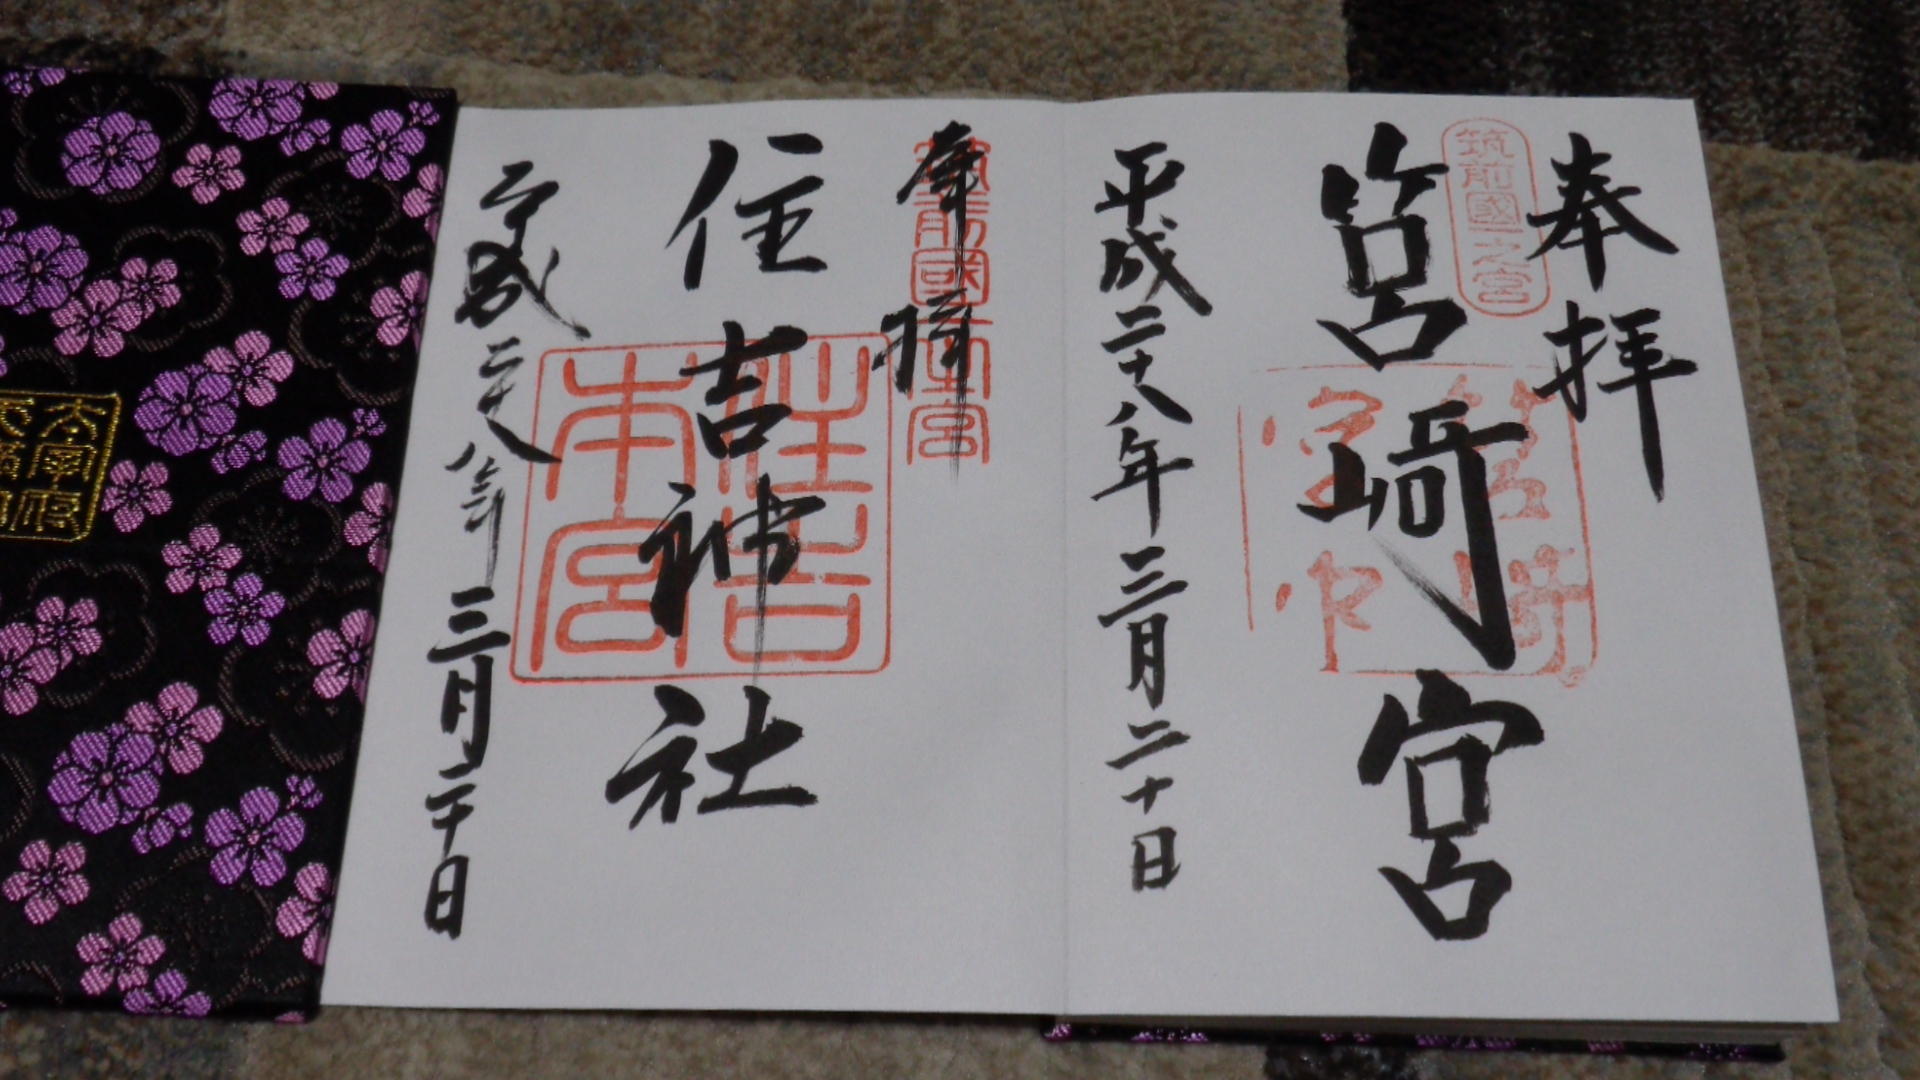 奉拝
筑前國一之宮
筥崎宮
筥崎宮印
平成二十八年三月二十日
奉拝
筑前國一宮
住吉神社
住吉本宮
平成二十八年三月二十日
太宰府